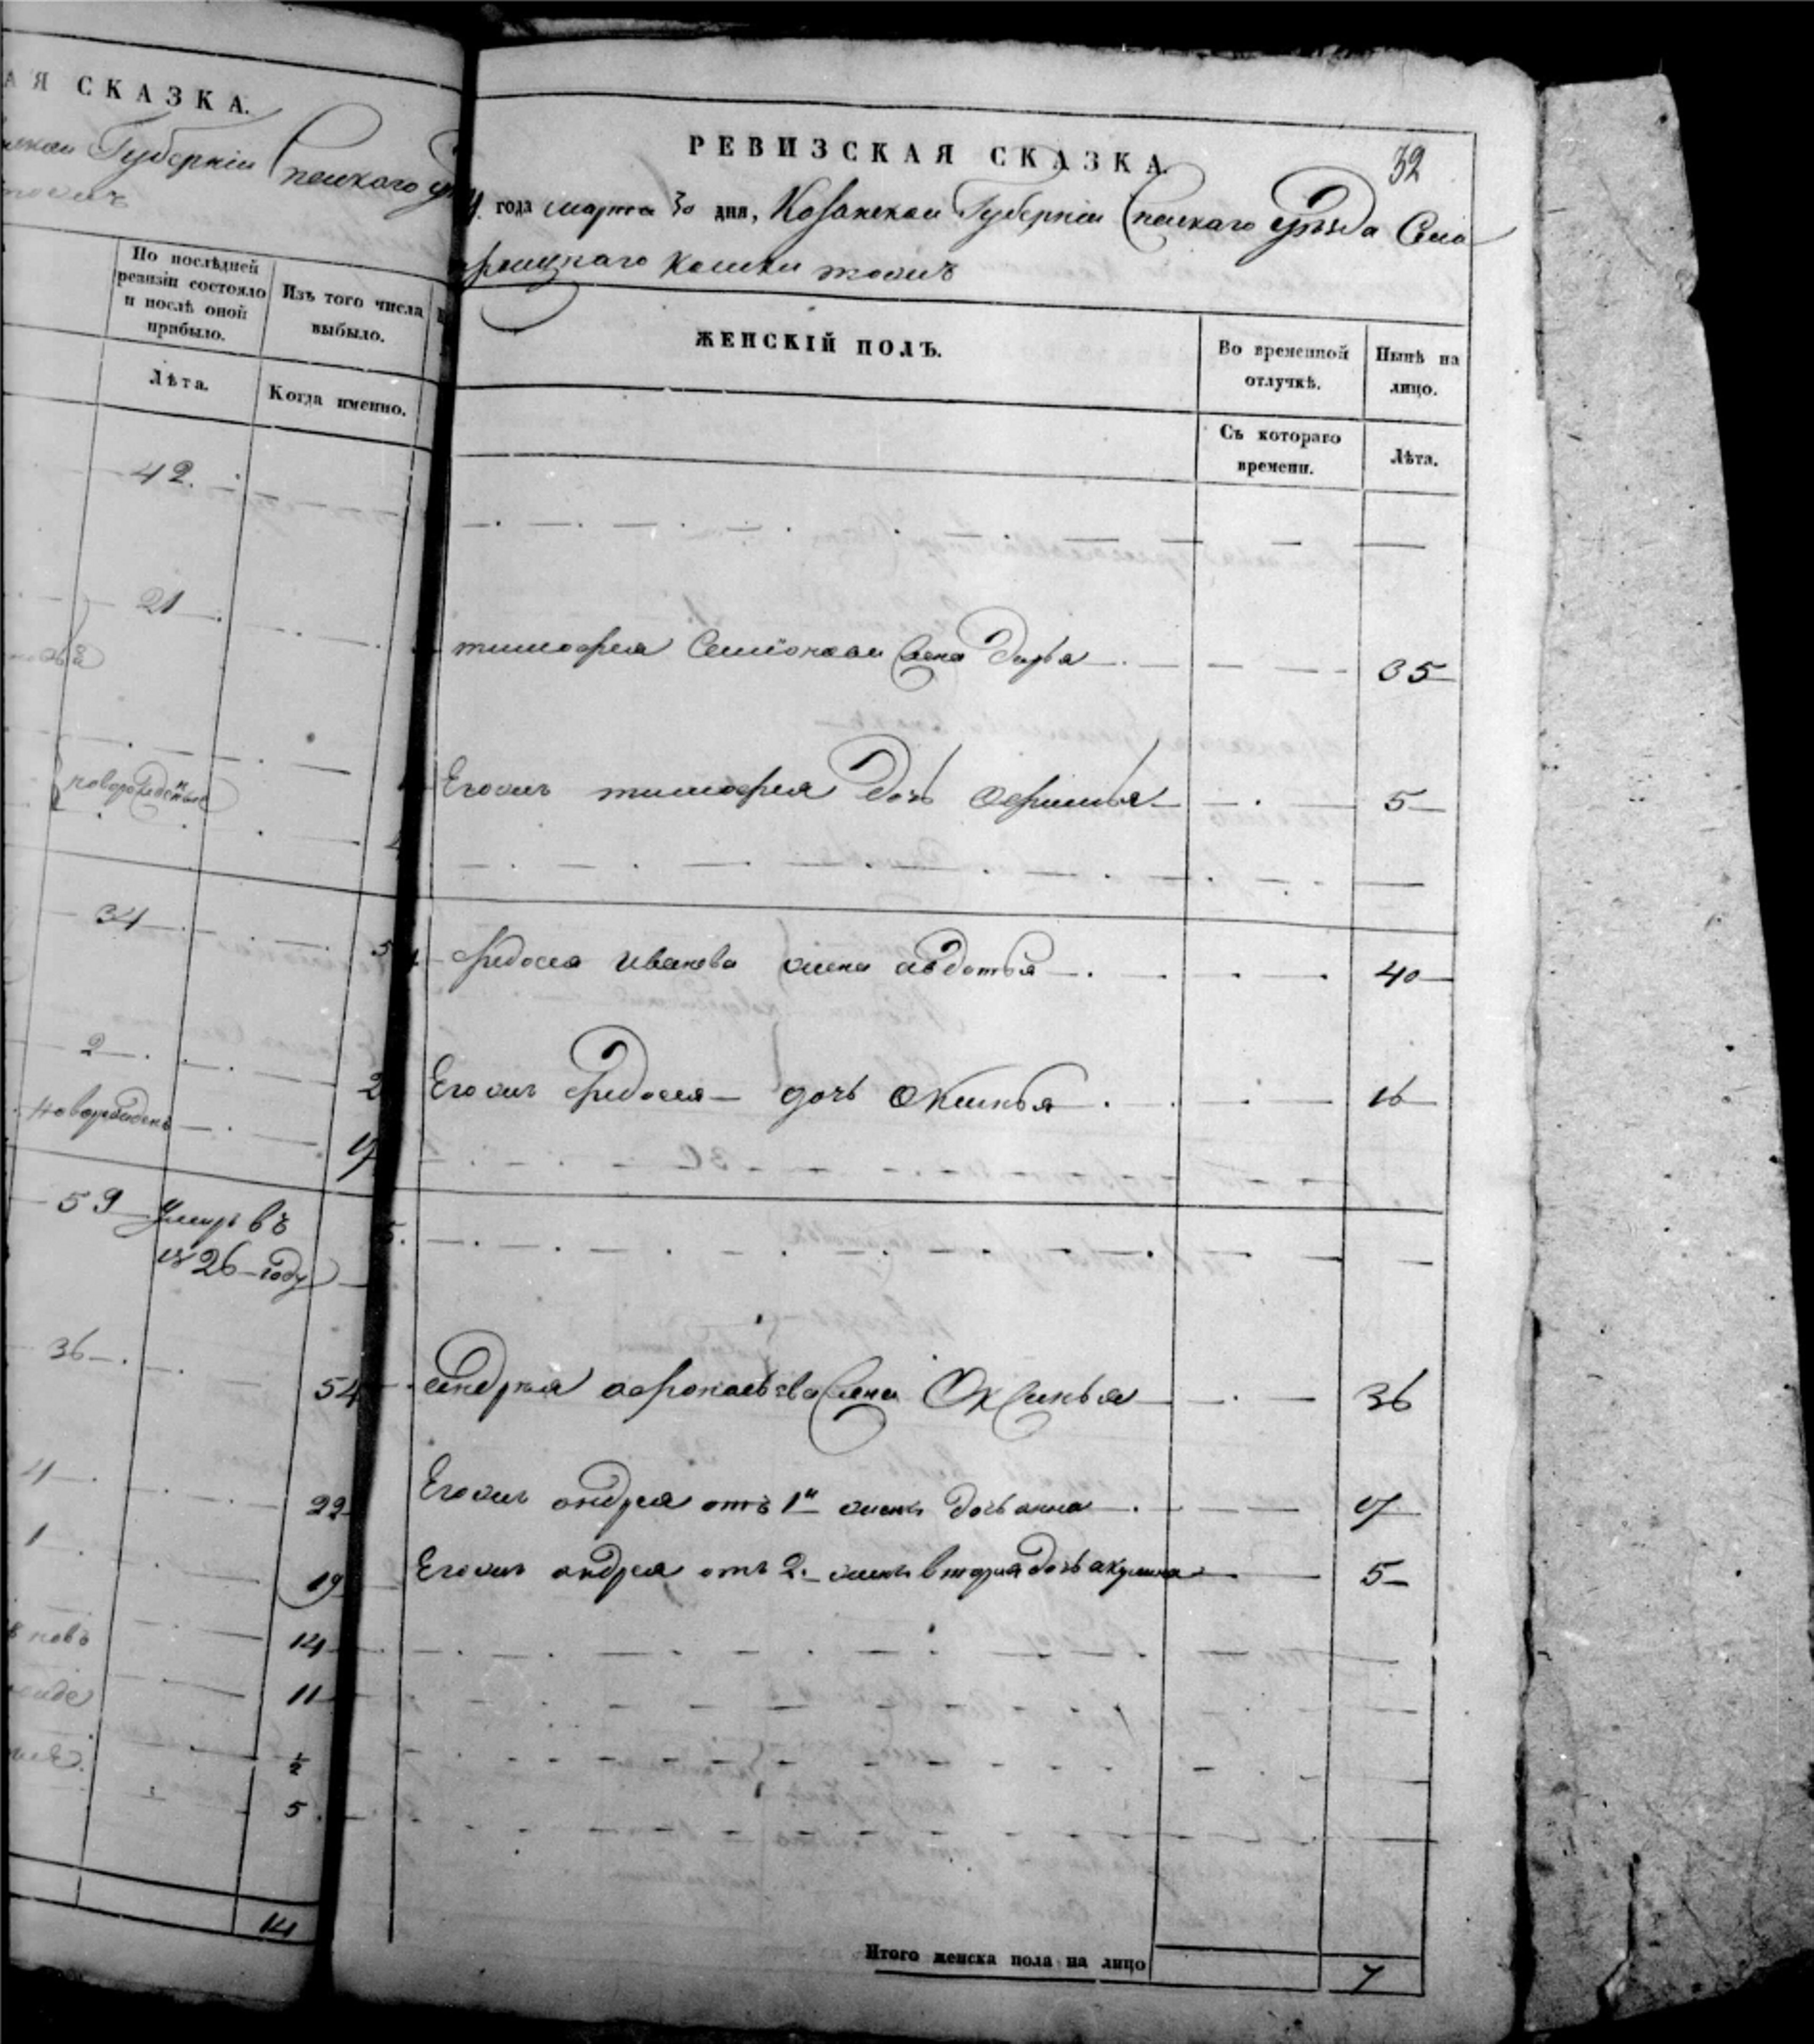 АЯ СКАЗКА.
Губерніи Спаскаго
тожъ
По послѣдней ревизіи состояло и послѣ оной прибыло.
Изъ того числа выбыло.
Лѣта.
Когда именно.
42
21
новорожденъ
34
2
новорожденъ
2
59 Умеръ въ
1826 году
36
54
4
22
1
19
14
11
½
5
14
РЕВИЗСКАЯ СКАЗКА
32
года марта 30 дня, Казанской Губерніи Спаскаго уѣзда Села
троицкаго кошки тожъ
ЖЕНСКІЙ ПОЛЪ.
Во временной отлучкѣ.
Нынѣ на лицо.
Съ котораго времени.
Лѣта.
тимофея Семіонова жена Дарья 35
Егожъ тимофея дочь Офимья 5
федосея иванова жена авдотья 40
Егожъ федосея дочь Оксинья 16
андрея жена Оксинья 36
Егожъ андрея отъ 1й жены дочь анна 17
Егожъ андрея отъ 2. жены вторая дочь акулина 5
Итого женска пола на лицо 7